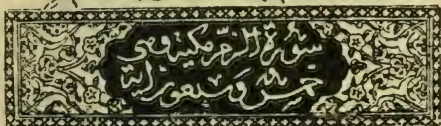 سورة الزمر مكية وهي
خمس وسبعون اية